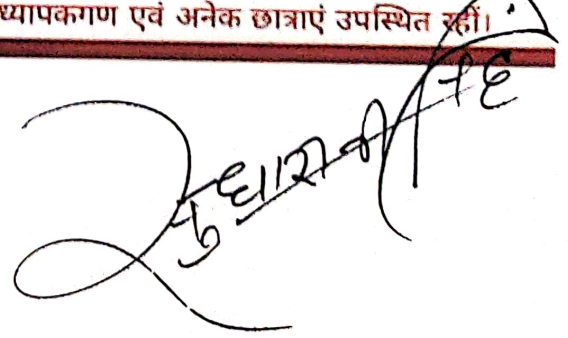 ध्यापकगण एवं अनेक छात्राएं उपस्थित रहीं।
सुधारानी सिंह